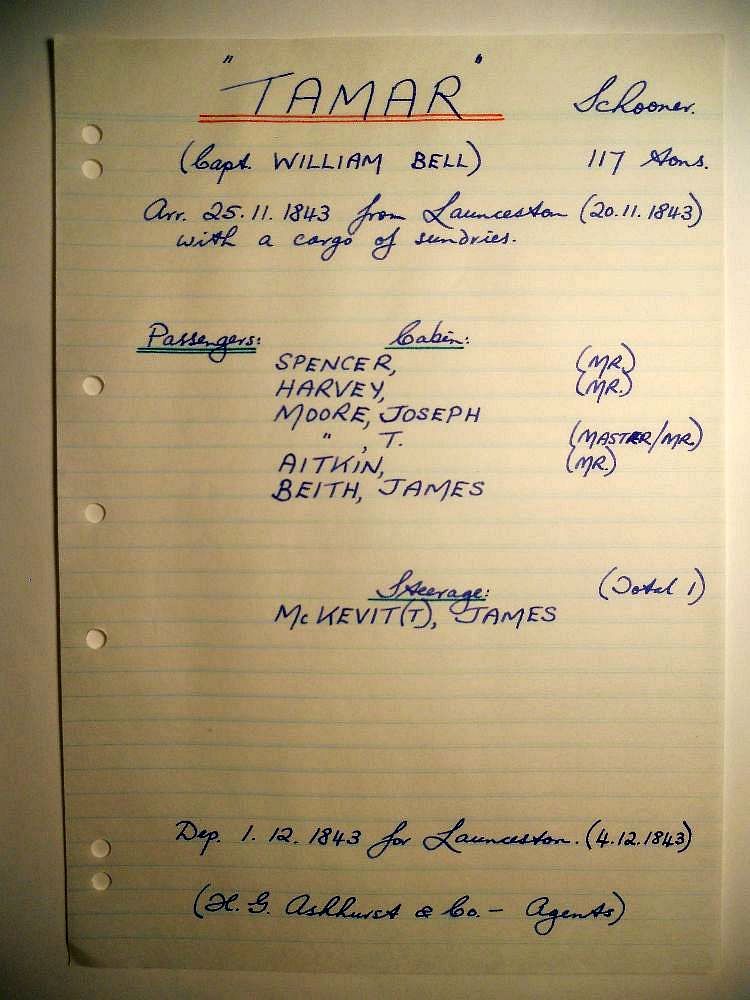 "TAMAR" Schooner.
(Capt. WILLIAM BELL) 117 tons.
Arr. 25.11.1843 from Launceston (20.11.1843)
with a cargo of sundries.
Passengers: Cabin:
SPENCER, (MR.)
HARVEY, (MR.)
MOORE, JOSEPH
" , T. (MASTER/MR.)
AITKIN, (MR.)
BEITH, JAMES
Steerage: (Total 1)
McKEVIT(T), JAMES
Dep. 1.12.1843 for Launceston. (4.12.1843)
(H. G. Ashhurst & Co. - Agents)